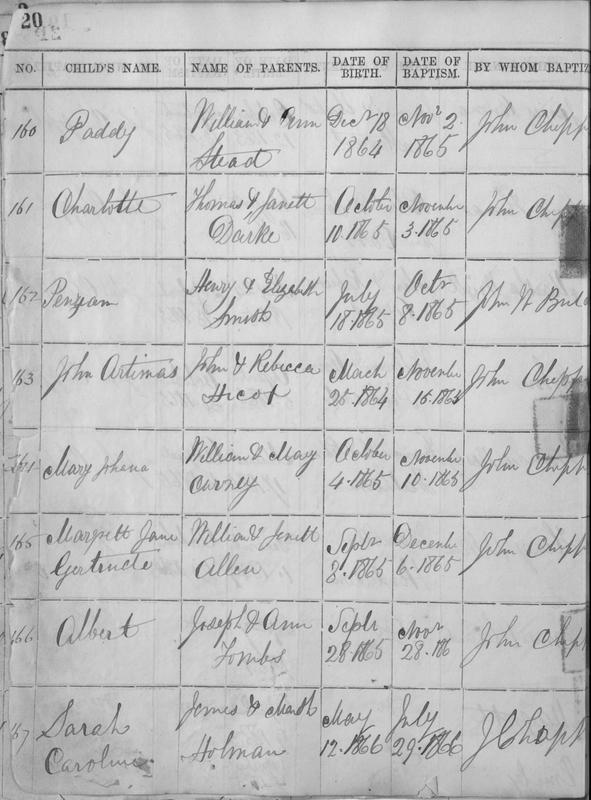 20
NO. CHILD'S NAME. NAME OF PARENTS. DATE OF BIRTH. DATE OF BAPTISM. BY WHOM BAPTIZ
160 Paddy William & Ann Stead Decr 18 1864 Novr 2. 1865 John Chepp
161 Charlotte Thomas & Janett Darke October 10.1865 Novembe 3.1865 John Chepp
162 Henry & Elizabeth Smith July 18.1865 Octr 8.1865 John W
163 John Artimas John & Rebecca Hicox March 25.1864 Novembe 15.1865 John Chepp
164 Mary Johana William & Mary Carney October 4.1865 Novembe 10.1865 John Chepp
165 Margrett Jane Gertrude William & Jenett Allen Septr 3.1865 Decembe 6.1865 John Chepp
166 Albert Joseph & Ann Tombs Septr 28.1865 Novr 28.186 John Chepp
167 Sarah Caroline James & Marth Holman May 12.1866 July 29.1866 J Chepp